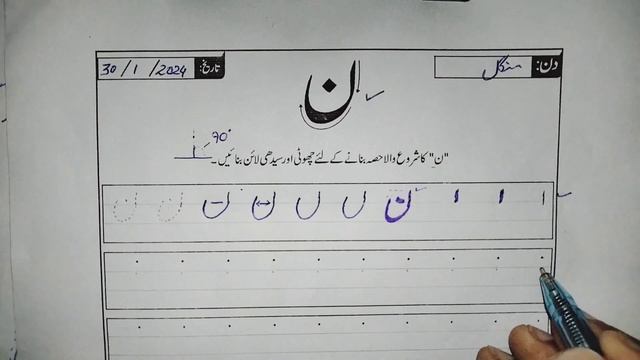 دن: منگل
تاریخ: 30/1/2024
ن
90°
"ن" کا شروع والا حصہ بنانے کے لئے چھوٹی اور سیدھی لائن بنائیں۔
ن